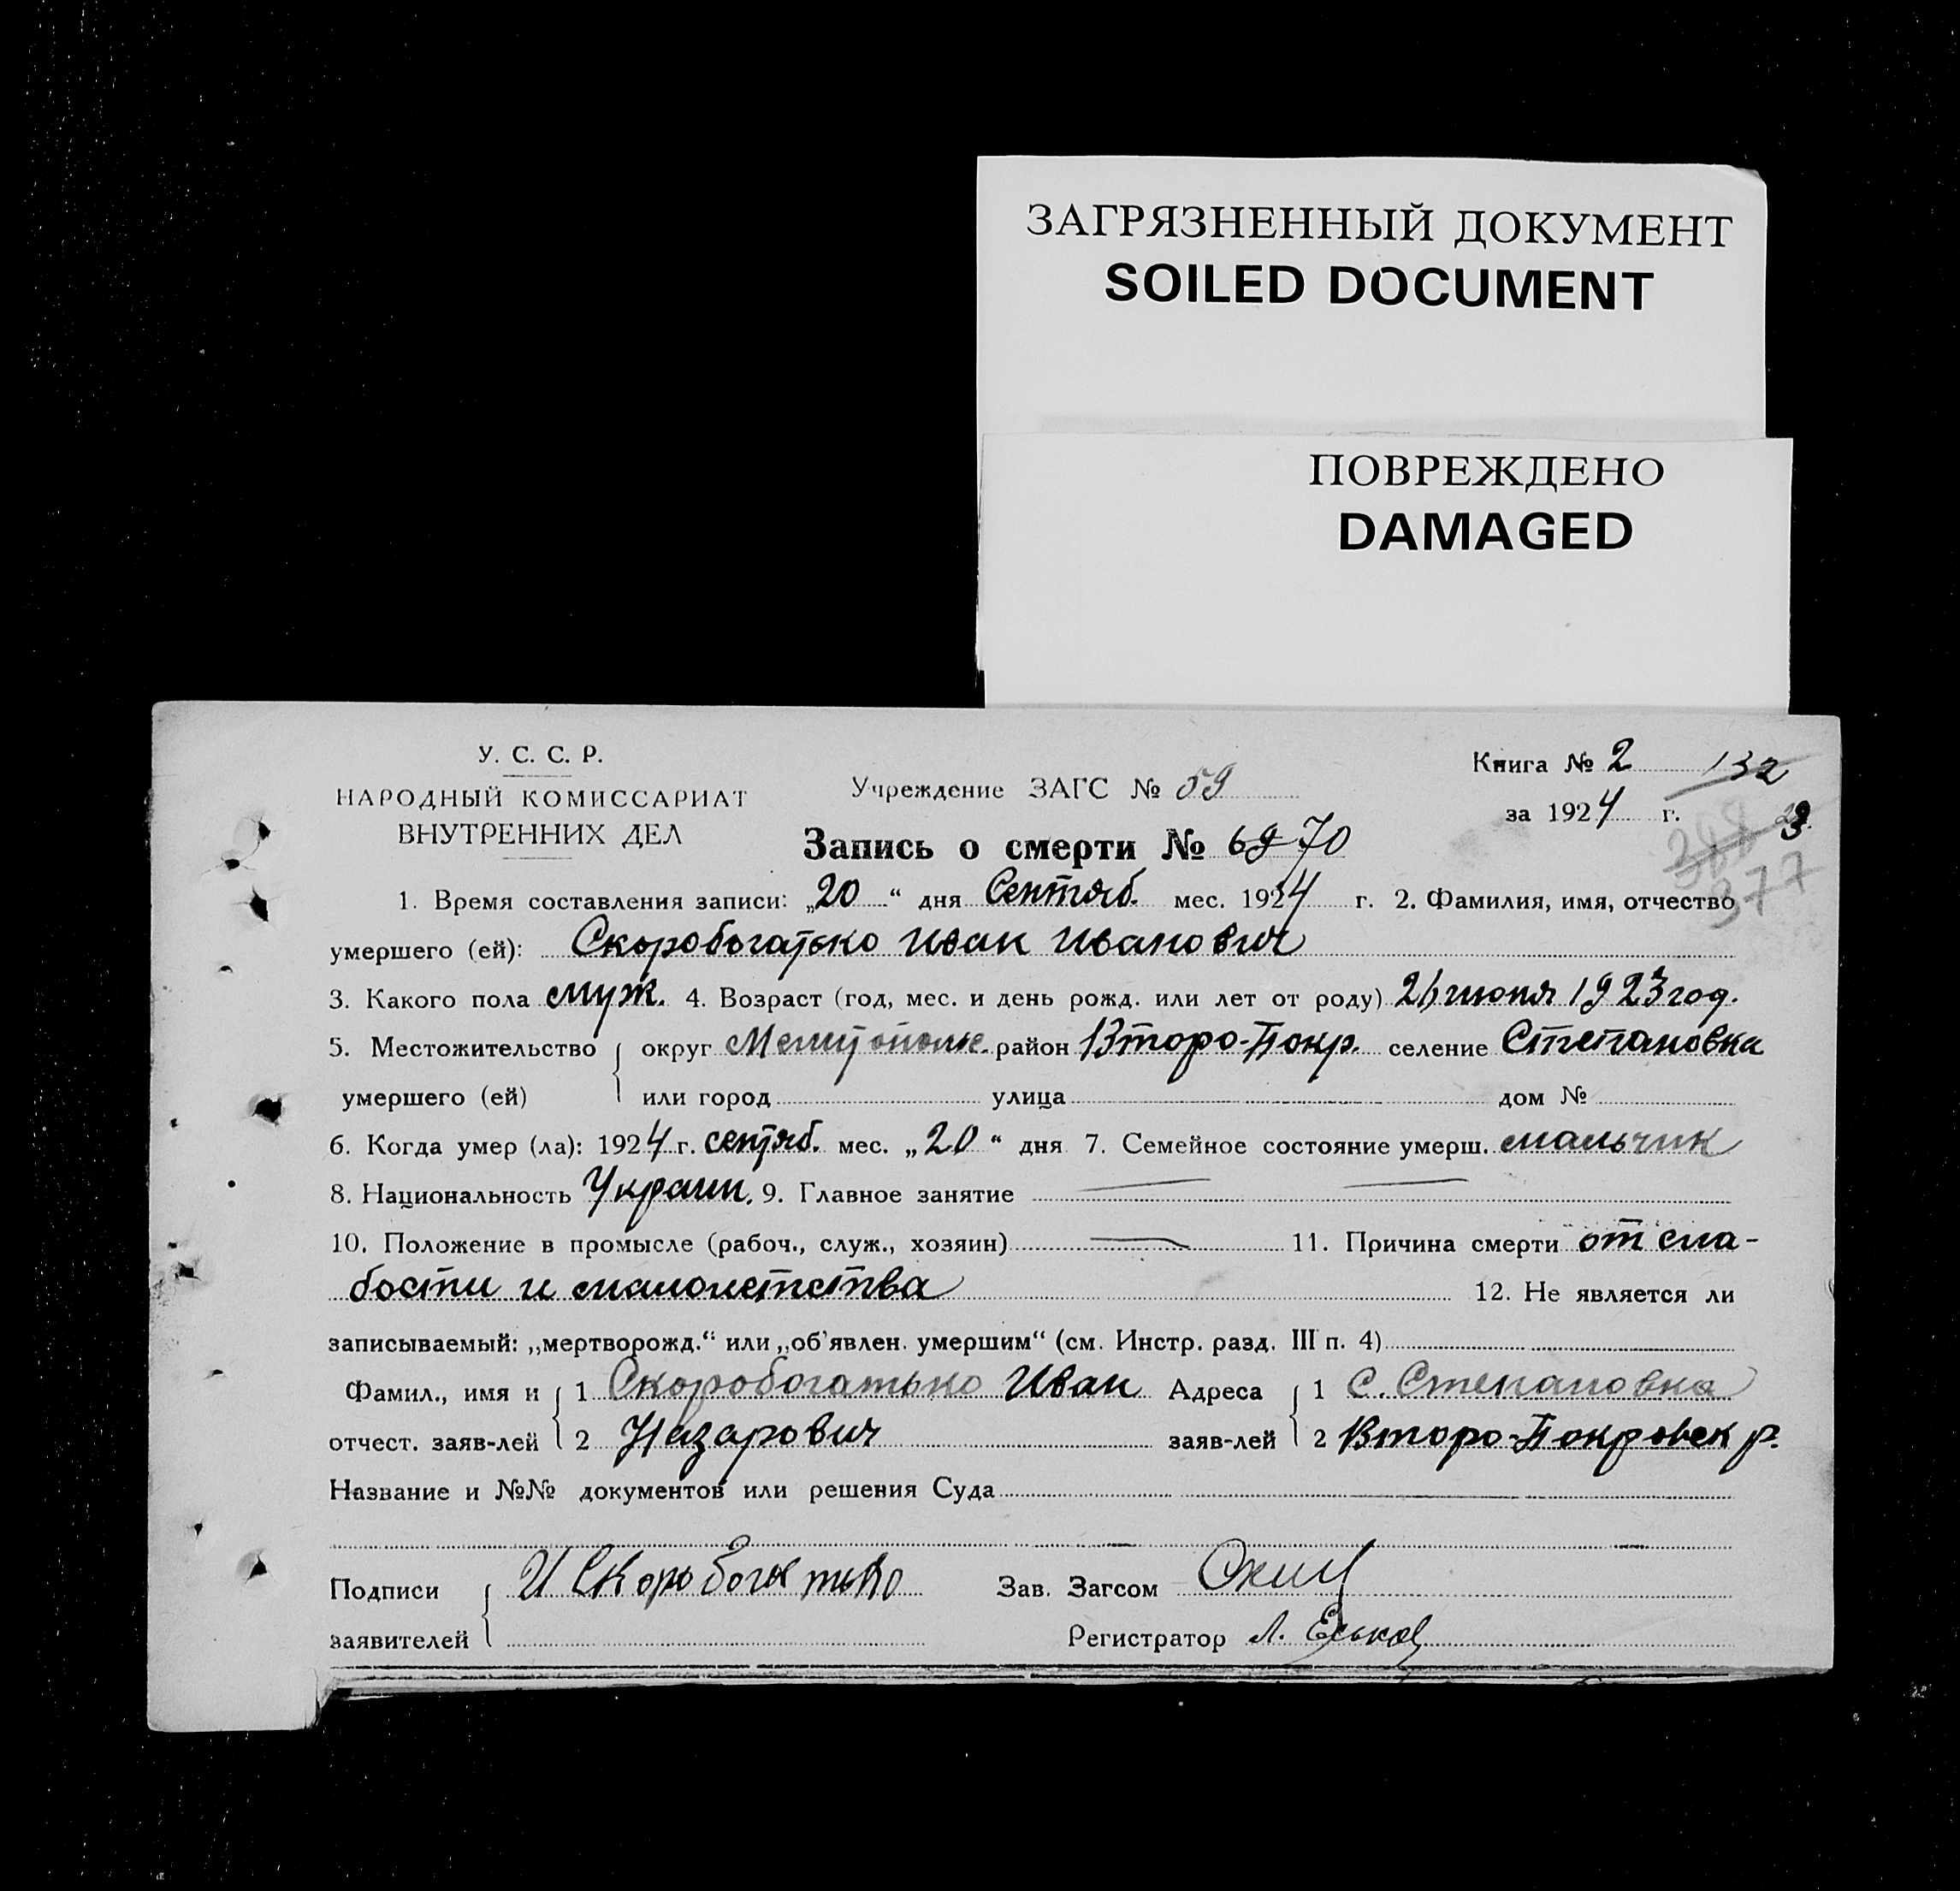 ЗАГРЯЗНЕННЫЙ ДОКУМЕНТ
SOILED DOCUMENT
ПОВРЕЖДЕНО
DAMAGED
У. С. С. Р.
НАРОДНЫЙ КОМИССАРИАТ
ВНУТРЕННИХ ДЕЛ
Учреждение ЗАГС № 59
Книга № 2 132
за 1924 г.
377
Запись о смерти № 6970
1. Время составления записи: „20“ дня Сентяб. мес. 1924 г. 2. Фамилия, имя, отчество
умершего (ей): Скоробогатько Иван Иванович
3. Какого пола муж. 4. Возраст (год, мес. и день рожд. или лет от роду) 26 июня 1923 год.
5. Местожительство округ Мелитопольс. район Второ-Покр. селение Степановка
умершего (ей) или город улица дом №
6. Когда умер (ла): 1924 г. сентяб. мес. „20“ дня 7. Семейное состояние умерш. мальчик
8. Национальность Украин. 9. Главное занятие
10. Положение в промысле (рабоч., служ., хозяин) 11. Причина смерти от сла-
бости и малолетства 12. Не является ли
записываемый: „мертворожд.“ или „об'явлен. умершим“ (см. Инстр. разд. III п. 4)
Фамил., имя и 1 Скоробогатько Иван Адреса 1 С. Степановка
отчест. заяв-лей 2 Назарович заяв-лей 2 Второ-Покровск р.
Название и №№ документов или решения Суда
Подписи И Скоробогатько Зав. Загсом
заявителей Регистратор Л. Еськов